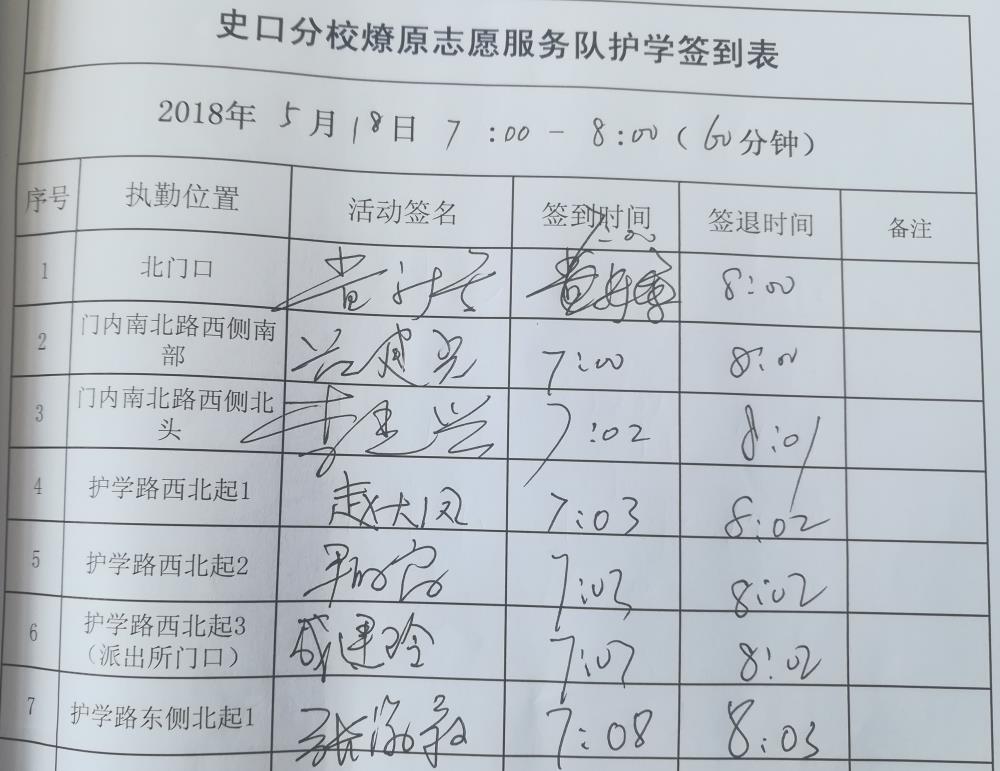 史口分校燎原志愿服务队护学签到表
2018年 5月18日 7:00-8:00(60分钟)
序号 执勤位置 活动签名 签到时间 签退时间 备注
1 北门口 7:00 8:00
2 门内南北路西侧南部 7:00 8:00
3 门内南北路西侧北头 李建兴 7:02 8:01
4 护学路西北起1 赵大凤 7:03 8:02
5 护学路西北起2 7:03 8:02
6 护学路西北起3
(派出所门口) 成建玲 7:07 8:02
7 护学路东侧北起1 7:08 8:03